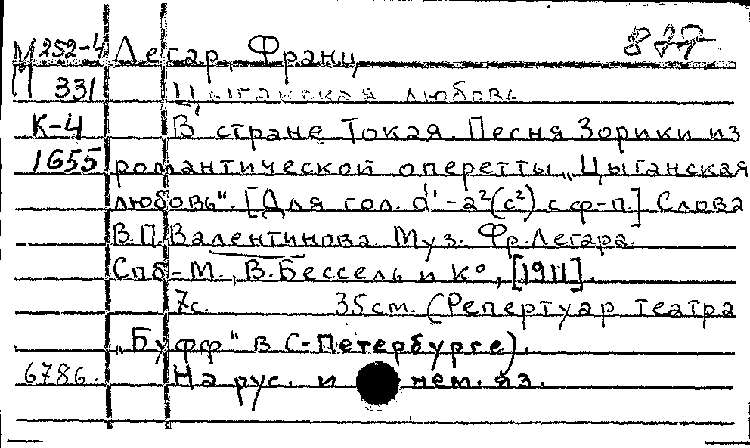 М 252-4 Легар, Франц 877
331 Цыганская любовь
К-4 В стране Токая. Песня Зорики из
1655 романтической оперетты „Цыганская
любовь". [Для гол. d¹-a²(c²) с ф-п.] Слова
В.П.Валентинова. Муз. Фр.Легара.
Спб-М., В.Бессель и К°, [1911].
7с. 35см. (Репертуар театра
„Буфф" в С-Петербурге).
6786. На рус. и нем. яз.